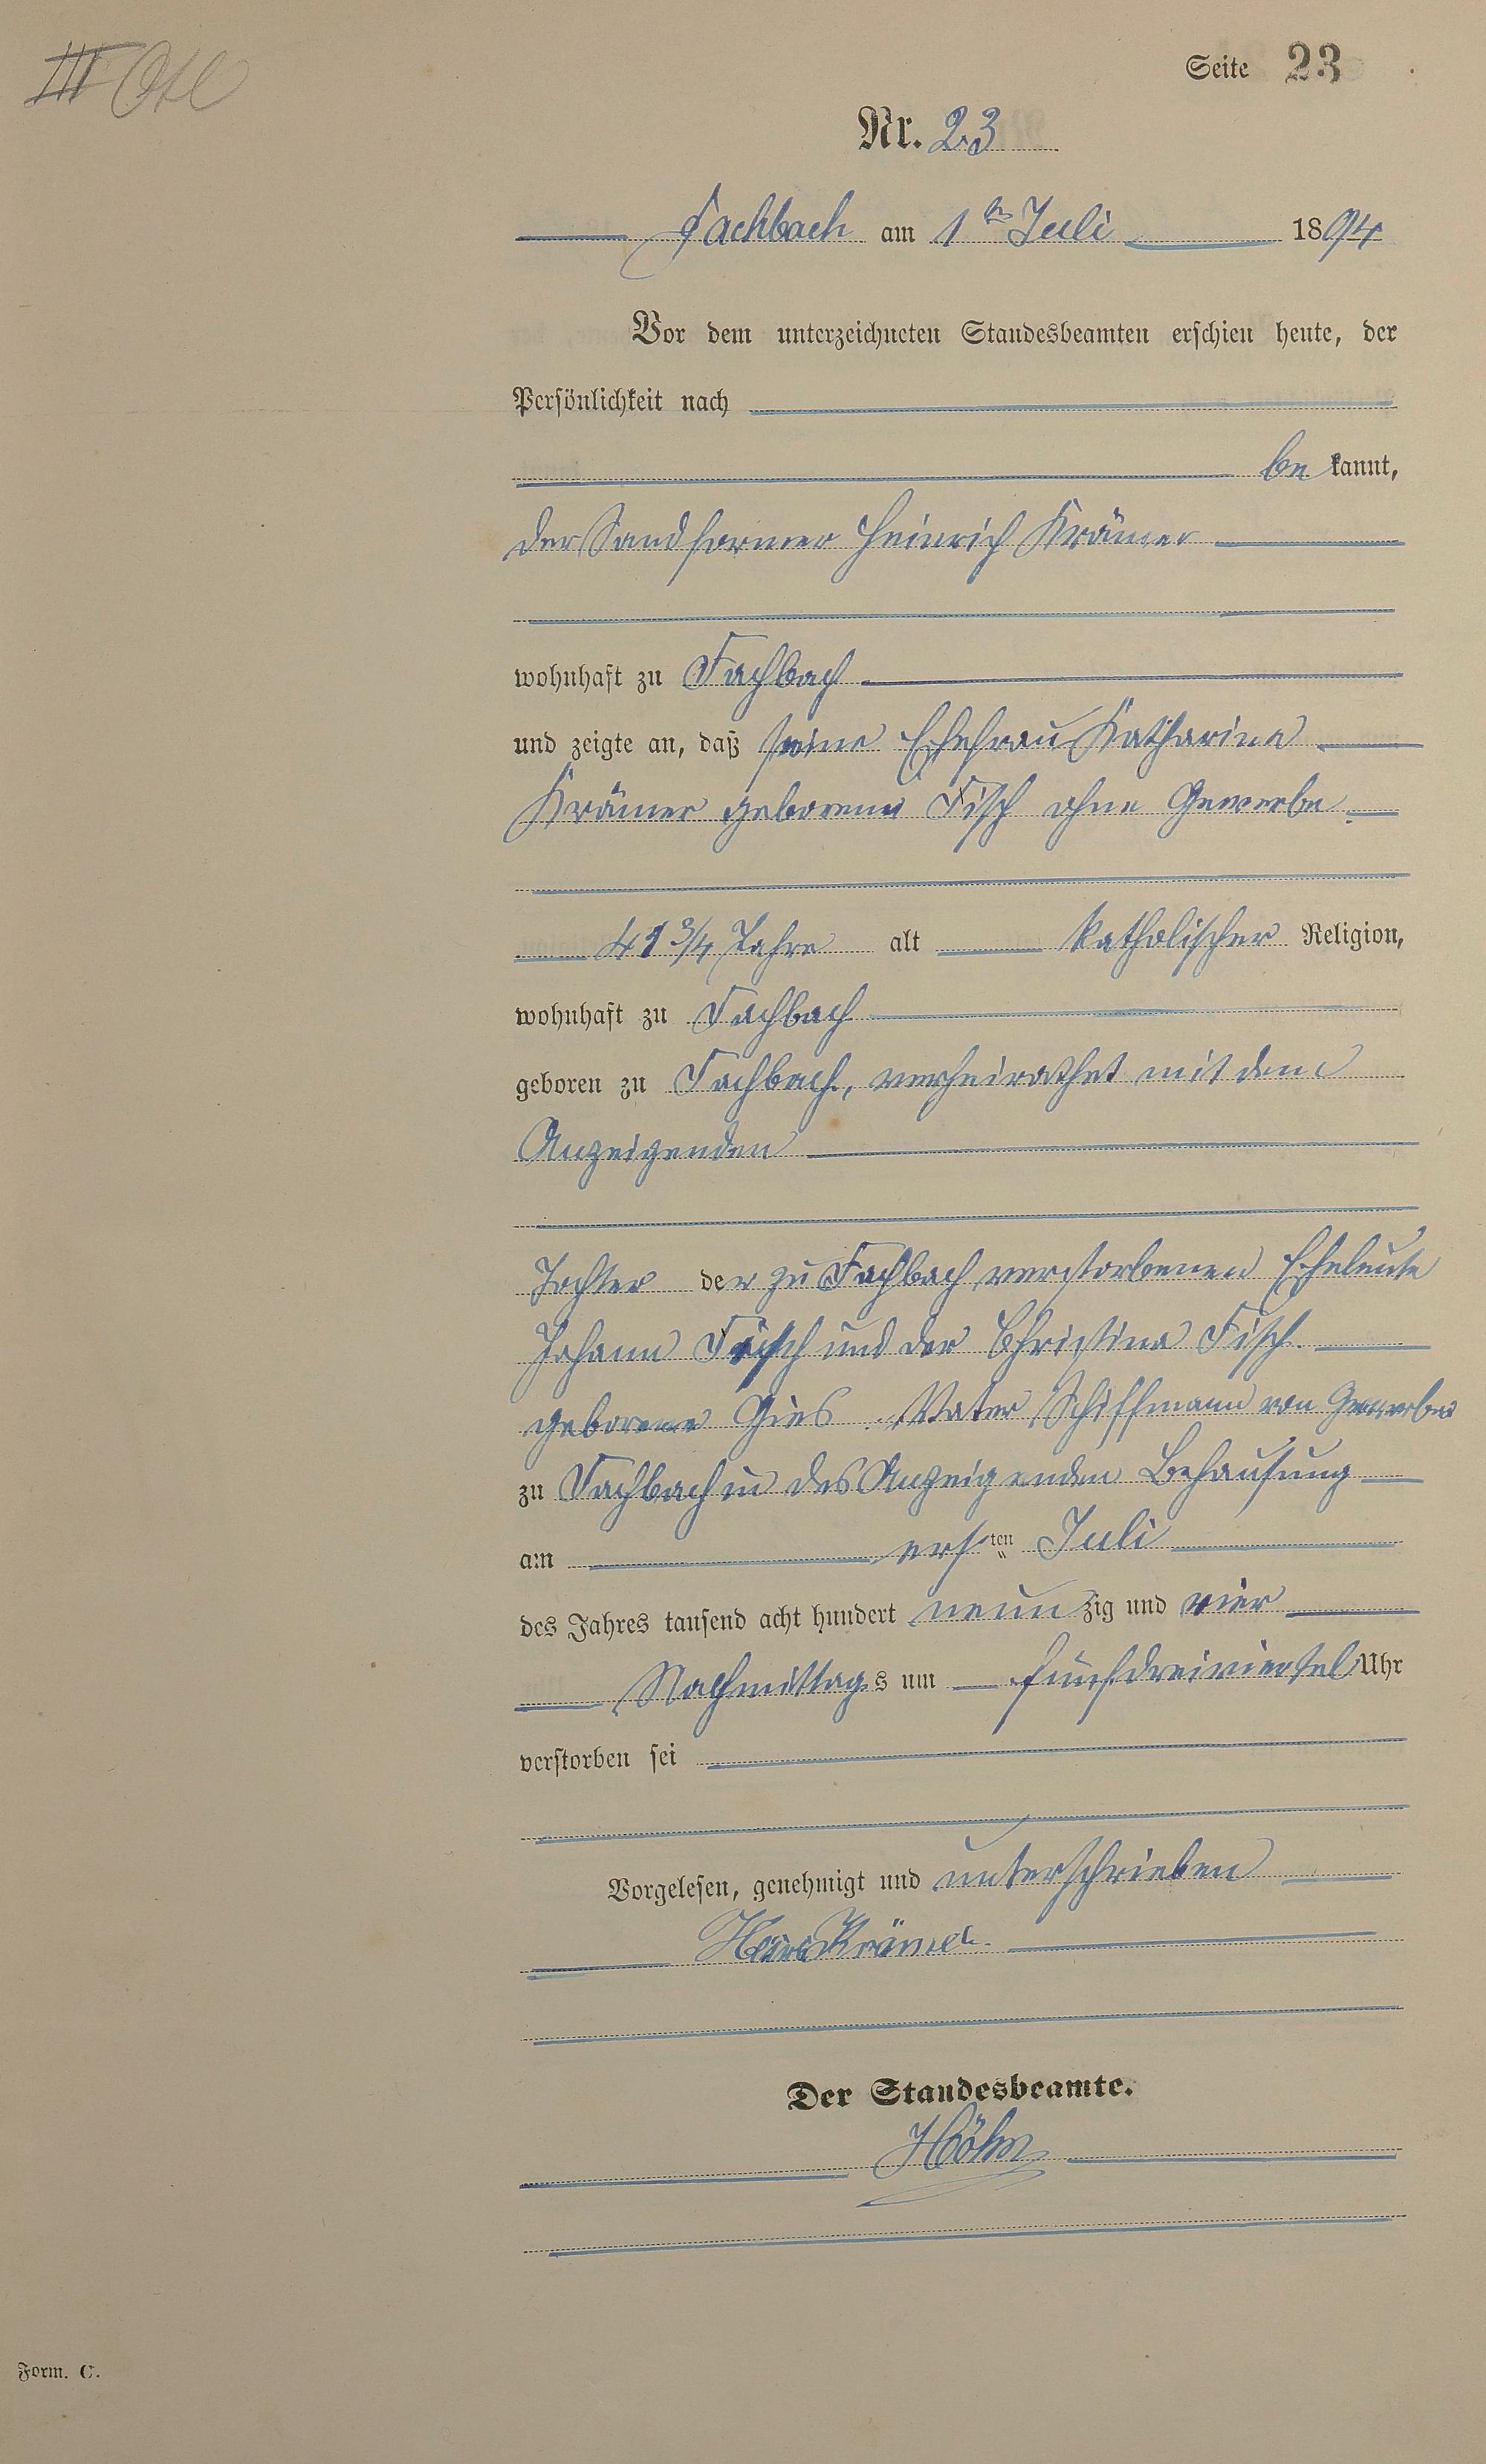 III
Seite 23
Nr. 23
Fachbach am 1ten Juli 1894
Vor dem unterzeichneten Standesbeamten erschien heute, der
Persönlichkeit nach
be kannt,
der Sandformer Heinrich Krämer
wohnhaft zu Fachbach
und zeigte an, daß seine Ehefrau Katharina
Krämer geborene Fisch ohne Gewerbe
41 3/4 Jahre alt katholischer Religion,
wohnhaft zu Fachbach
geboren zu Fachbach, verheirathet mit dem
Anzeigenden
Tochter der zu Fachbach verstorbenen Eheleute
Johann Fisch und der Christina Fisch
geborene Gies. Vater Schiffmann von Gewerbe
zu Fachbach in des Anzeigenden Behausung
am ersten Juli
des Jahres tausend acht hundert neunzig und vier
Nachmittags um fünfdreiviertel Uhr
verstorben sei
Vorgelesen, genehmigt und unterschrieben
Krämer
Der Standesbeamte.
Höhn
Form. C.